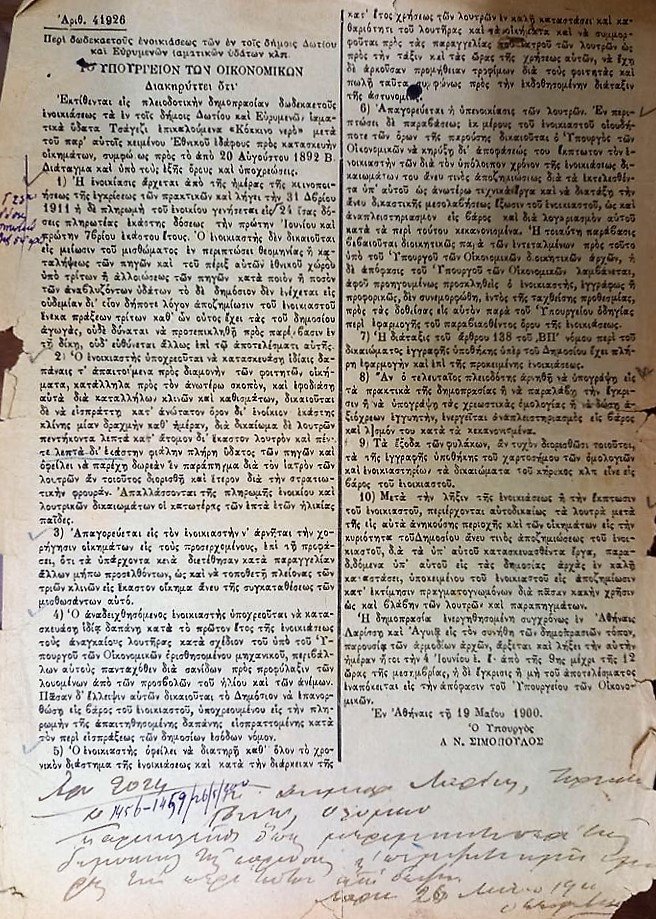 Ἀριθ. 41926
Περὶ δωδεκαετοῦς ἐνοικιάσεως τῶν ἐν τοῖς δήμοις Δωτίου
καὶ Εὐρυμενῶν ἰαματικῶν ὑδάτων κλπ.
ΤΟ ΥΠΟΥΡΓΕΙΟΝ ΤΩΝ ΟΙΚΟΝΟΜΙΚΩΝ
Διακηρύττει ὅτι
Ἐκτίθενται εἰς πλειοδοτικὴν δημοπρασίαν δωδεκαετοῦς
ἐνοικιάσεως τὰ ἐν τοῖς δήμοις Δωτίου καὶ Εὐρυμενῶν ἰαμα-
τικὰ ὕδατα Τσάγεζι ἐπικαλούμενα «Κόκκινο νερὸ» μετὰ
τοῦ παρ' αὐτοῖς κειμένου Ἐθνικοῦ ἐδάφους πρὸς κατασκευὴν
οἰκημάτων, συμφώνως πρὸς τὸ ἀπὸ 20 Αὐγούστου 1892 Β.
Διάταγμα καὶ ὑπὸ τοὺς ἑξῆς ὅρους καὶ ὑποχρεώσεις.
1) Ἡ ἐνοικίασις ἄρχεται ἀπὸ τῆς ἡμέρας τῆς κοινοποιή-
σεως τῆς ἐγκρίσεως τῶν πρακτικῶν καὶ λήγει τὴν 31 Δβρίου
1911 ἡ δὲ πληρωμὴ τοῦ ἐνοικίου γενήσεται εἰς 24 ἴσας δό-
σεις πληρωτέας ἑκάστης δόσεως τὴν πρώτην Ἰουνίου καὶ
πρώτην 7βρίου ἑκάστου ἔτους. Ὁ ἐνοικιαστὴς δὲν δικαιοῦται
εἰς μείωσιν τοῦ μισθώματος ἐν περιπτώσει θεομηνίας ἢ κα-
ταλήψεως τῶν πηγῶν καὶ τοῦ πέριξ αὐτῶν ἐθνικοῦ χώρου
ὑπὸ τρίτων ἢ ἀλλοιώσεως τῶν πηγῶν κατὰ ποιὸν ἢ ποσὸν
τῶν ἀναβλυζόντων ὑδάτων τὸ δὲ δημόσιον δὲν ἐνέχεται εἰς
οὐδεμίαν δι' οἷον δήποτε λόγον ἀποζημίωσιν τοῦ ἐνοικιαστοῦ
ἕνεκα πράξεων τρίτων καθ' ὧν οὗτος ἔχει τὰς τοῦ δημοσίου
ἀγωγάς, οὐδὲ δύναται νὰ προσεπικληθῇ πρὸς παρέμβασιν ἐν
τῇ δίκῃ, οὐδ' εὐθύνεται ἄλλως ἐπὶ τῷ ἀποτελέσματι αὐτῆς.
2) Ὁ ἐνοικιαστὴς ὑποχρεοῦται νὰ κατασκευάσῃ ἰδίαις δα-
πάναις τ' ἀπαιτούμενα πρὸς διαμονὴν τῶν φοιτητῶν, οἰκή-
ματα, κατάλληλα πρὸς τὸν ἀνωτέρω σκοπόν, καὶ ἐφοδιάσῃ
αὐτὰ διὰ καταλλήλων κλινῶν καὶ καθισμάτων, δικαιοῦται
δὲ νὰ εἰσπράττῃ κατ' ἀνώτατον ὅρον δι' ἐνοίκιον ἑκάστης
κλίνης μίαν δραχμὴν καθ' ἡμέραν, διὰ δικαίωμα δὲ λουτρῶν
πεντήκοντα λεπτὰ κατ' ἄτομον δι' ἕκαστον λουτρὸν καὶ πέν-
τε λεπτὰ δι' ἑκάστην φιάλην πλήρη ὕδατος τῶν πηγῶν καὶ
ὀφείλει νὰ παρέχῃ δωρεὰν ἓν παράπηγμα διὰ τὸν ἰατρὸν τῶν
λουτρῶν ἂν τοιοῦτος διορισθῇ καὶ ἕτερον διὰ τὴν στρατιω-
τικὴν φρουράν. Ἀπαλλάσσονται τῆς πληρωμῆς ἐνοικίου καὶ
λουτρικῶν δικαιωμάτων οἱ κατωτέρας τῶν ἑπτὰ ἐτῶν ἡλικίας
παῖδες.
3) Ἀπαγορεύεται εἰς τὸν ἐνοικιαστὴν ν' ἀρνῆται τὴν χο-
ρήγησιν οἰκημάτων εἰς τοὺς προσερχομένους, ἐπὶ τῇ προφά-
σει, ὅτι τὰ ὑπάρχοντα κενὰ διετέθησαν κατὰ παραγγελίαν
ἄλλων μήπω προσελθόντων, ὡς καὶ νὰ τοποθετῇ πλείονας τῶν
τριῶν κλινῶν εἰς ἕκαστον οἴκημα ἄνευ τῆς συγκαταθέσεως τῶν
μισθωσάντων αὐτό.
4) Ὁ ἀναδειχθησόμενος ἐνοικιαστὴς ὑποχρεοῦται νὰ κατα-
σκευάσῃ ἰδίᾳ δαπάνῃ κατὰ τὸ πρῶτον ἔτος τῆς ἐνοικιάσεως
τοὺς ἀναγκαίους λουτῆρας κατὰ σχέδιον τοῦ ὑπὸ τοῦ Ὑπ-
ουργοῦ τῶν Οἰκονομικῶν ὁρισθησομένου μηχανικοῦ, περιβάλ-
λων αὐτοὺς πανταχόθεν διὰ σανίδων πρὸς προφύλαξιν τῶν
λουομένων ἀπὸ τῶν προσβολῶν τοῦ ἡλίου καὶ τῶν ἀνέμων.
Πᾶσαν δ' ἔλλειψιν αὐτῶν δικαιοῦται τὸ Δημόσιον νὰ ἐπανορ-
θώσῃ εἰς βάρος τοῦ ἐνοικιαστοῦ, ὑποχρεουμένου εἰς τὴν πλη-
ρωμὴν τῆς ἀπαιτηθησομένης δαπάνης εἰσπραττομένης κατὰ
τὸν περὶ εἰσπράξεως τῶν δημοσίων ἐσόδων νόμον.
5) Ὁ ἐνοικιαστὴς ὀφείλει νὰ διατηρῇ καθ' ὅλον τὸ χρο-
νικὸν διάστημα τῆς ἐνοικιάσεως καὶ κατὰ τὴν διάρκειαν τῆς
κατ' ἔτος χρήσεως τῶν λουτρῶν ἐν καλῇ καταστάσει καὶ κα-
θαριότητι τοῦ λουτῆρας καὶ τὰ οἰκήματα καὶ νὰ συμμορ-
φοῦται πρὸς τὰς παραγγελίας τοῦ ἰατροῦ τῶν λουτρῶν ὡς
πρὸς τὴν τάξιν καὶ τὰς ὥρας τῆς χρήσεως αὐτῶν, νὰ ἔχῃ
δὲ ἀρκοῦσαν προμήθειαν τροφίμων διὰ τοὺς φοιτητὰς καὶ
πωλῇ ταῦτα συμφώνως πρὸς τὴν ἐκδοθησομένην διάταξιν
τῆς ἀστυνομίας.
6) Ἀπαγορεύεται ἡ ὑπενοικίασις τῶν λουτρῶν. Ἐν περι-
πτώσει δὲ παραβάσεως ἐκ μέρους τοῦ ἐνοικιαστοῦ οἱουδή-
ποτε τῶν ὅρων τῆς παρούσης δικαιοῦται ὁ Ὑπουργὸς τῶν
Οἰκονομικῶν νὰ κηρύξῃ δι' ἀποφάσεώς του ἔκπτωτον τὸν ἐ-
νοικιαστὴν τῶν διὰ τὸν ὑπόλοιπον χρόνον τῆς ἐνοικιάσεως δι-
καιωμάτων του ἄνευ τινὸς ἀποζημιώσεως διὰ τὰ ἐκτελεσθέν-
τα ὑπ' αὐτοῦ ὡς ἀνωτέρω τεχνικὰ ἔργα καὶ νὰ διατάξῃ τὴν
ἄνευ δικαστικῆς μεσολαβήσεως ἔξωσιν τοῦ ἐνοικιαστοῦ, ὡς καὶ
ἀναπλειστηριασμὸν εἰς βάρος καὶ διὰ λογαριασμὸν αὐτοῦ
κατὰ τὰ περὶ τούτου κεκανονισμένα. Ἡ τοιαύτη παραβίασις
βεβαιοῦται διοικητικῶς παρὰ τῶν ἐντεταλμένων πρὸς τοῦτο
ὑπὸ τοῦ Ὑπουργοῦ τῶν Οἰκονομικῶν διοικητικῶν ἀρχῶν, ἡ
δὲ ἀπόφασις τοῦ Ὑπουργοῦ τῶν Οἰκονομικῶν λαμβάνεται,
ἀφοῦ προηγουμένως προσκληθεὶς ὁ ἐνοικιαστής, ἐγγράφως ἢ
προφορικῶς, δὲν συνεμορφώθη, ἐντὸς τῆς ταχθείσης προθεσμίας,
πρὸς τὰς δοθείσας εἰς αὐτὸν παρὰ τοῦ Ὑπουργείου ὁδηγίας
περὶ ἐφαρμογῆς τοῦ παραβιασθέντος ὅρου τῆς ἐνοικιάσεως.
7) Ἡ διάταξις τοῦ ἄρθρου 138 τοῦ ͵ΒΠ' νόμου περὶ τοῦ
δικαιώματος ἐγγραφῆς ὑποθήκης ὑπὲρ τοῦ Δημοσίου ἔχει πλή-
ρη ἐφαρμογὴν καὶ ἐπὶ τῆς προκειμένης ἐνοικιάσεως.
8) Ἂν ὁ τελευταῖος πλειοδότης ἀρνηθῇ νὰ ὑπογράψῃ εἰς
τὰ πρακτικὰ τῆς δημοπρασίας ἢ νὰ παραλάβῃ τὴν ἔγκρι-
σιν ἢ νὰ ὑπογράψῃ τὰς χρεωστικὰς ὁμολογίας ἢ νὰ δώσῃ ἀ-
ξιόχρεων ἐγγυητήν, ἐνεργεῖται ἀναπλειστηριασμὸς εἰς βάρος
καὶ λ)σμόν του κατὰ τὰ κεκανονισμένα.
9) Τὰ ἔξοδα τῶν φυλάκων, ἂν τυχὸν διορισθῶσι τοιοῦτοι,
τὰ τῆς ἐγγραφῆς ὑποθήκης τοῦ χαρτοσήμου τῶν ὁμολογιῶν
καὶ ἐνοικιαστηρίων τὰ δικαιώματα τοῦ κήρυκος κλπ εἶνε εἰς
βάρος τοῦ ἐνοικιαστοῦ.
10) Μετὰ τὴν λῆξιν τῆς ἐνοικιάσεως ἢ τὴν ἔκπτωσιν
τοῦ ἐνοικιαστοῦ, περιέρχονται αὐτοδικαίως τὰ λουτρὰ μετὰ
τῆς εἰς αὐτὰ ἀνηκούσης περιοχῆς καὶ τῶν οἰκημάτων εἰς τὴν
κυριότητα τοῦ Δημοσίου ἄνευ τινὸς ἀποζημιώσεως τοῦ ἐνοικια-
στοῦ, διὰ τὰ ὑπ' αὐτοῦ κατασκευασθέντα ἔργα, παρα-
διδόμενα ὑπ' αὐτοῦ εἰς τὰς δημοσίας ἀρχὰς ἐν καλῇ
καταστάσει, ὑποκειμένου τοῦ ἐνοικιαστοῦ εἰς ἀποζημίωσιν
κατ' ἐκτίμησιν πραγματογνωμόνων διὰ πᾶσαν κακὴν χρῆσιν
ὡς καὶ βλάβην τῶν λουτρῶν καὶ παραπηγμάτων.
Ἡ δημοπρασία ἐνεργηθησομένη συγχρόνως ἐν Ἀθήναις
Λαρίσσῃ καὶ Ἀγυιᾷ εἰς τὸν συνήθη τῶν δημοπρασιῶν τόπον,
παρουσίᾳ τῶν ἁρμοδίων ἀρχῶν, ἄρξεται καὶ λήξει τὴν αὐτὴν
ἡμέραν ἤτοι τὴν 4 Ἰουνίου ἐ. ἔ. ἀπὸ τῆς 9ης μέχρι τῆς 12
ὥρας τῆς μεσημβρίας, ἡ δὲ ἔγκρισις ἢ μὴ τοῦ ἀποτελέσματος
ἐναπόκειται εἰς τὴν ἀπόφασιν τοῦ Ὑπουργείου τῶν Οἰκονο-
μικῶν.
Ἐν Ἀθήναις τῇ 19 Μαΐου 1900.
Ὁ Ὑπουργὸς
Α Ν. ΣΙΜΟΠΟΥΛΟΣ